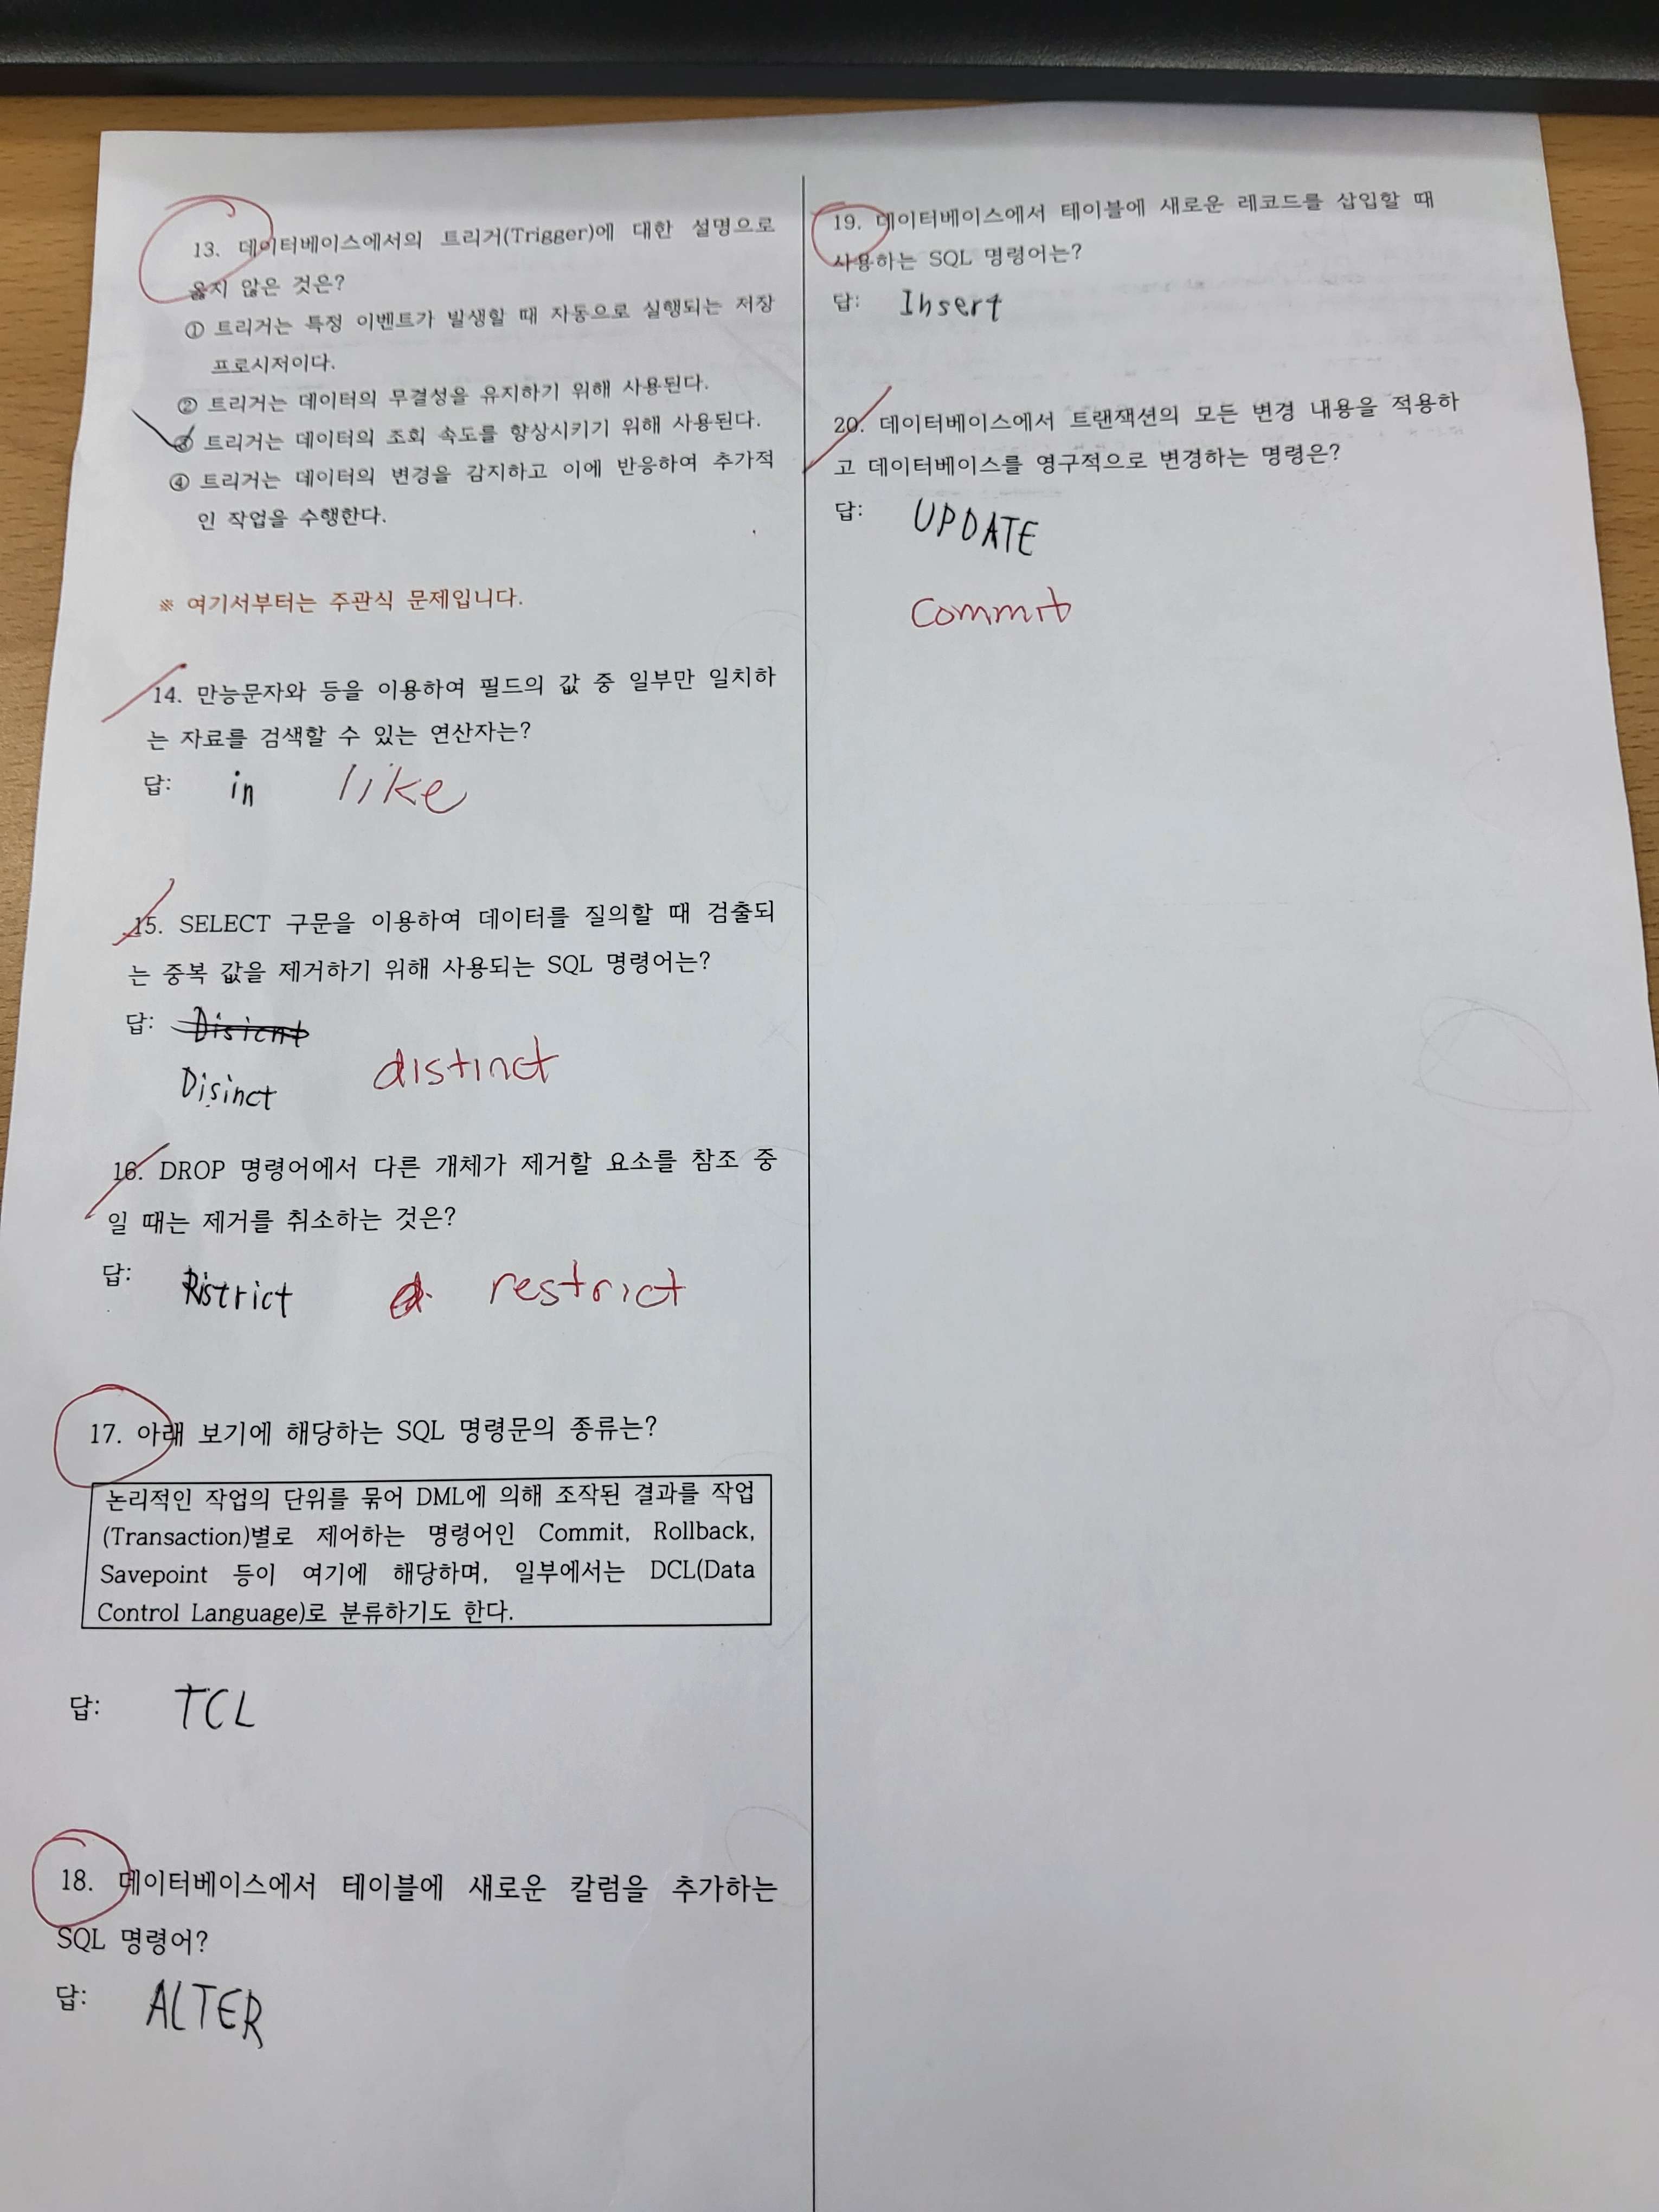 13. 데이터베이스에서의 트리거(Trigger)에 대한 설명으로
옳지 않은 것은?
① 트리거는 특정 이벤트가 발생할 때 자동으로 실행되는 저장
프로시저이다.
② 트리거는 데이터의 무결성을 유지하기 위해 사용된다.
③ 트리거는 데이터의 조회 속도를 향상시키기 위해 사용된다.
④ 트리거는 데이터의 변경을 감지하고 이에 반응하여 추가적
인 작업을 수행한다.
※ 여기서부터는 주관식 문제입니다.
14. 만능문자와 등을 이용하여 필드의 값 중 일부만 일치하
는 자료를 검색할 수 있는 연산자는?
답: in like
15. SELECT 구문을 이용하여 데이터를 질의할 때 검출되
는 중복 값을 제거하기 위해 사용되는 SQL 명령어는?
답: Disicnt
Disinct distinct
16. DROP 명령어에서 다른 개체가 제거할 요소를 참조 중
일 때는 제거를 취소하는 것은?
답: Ristrict restrict
17. 아래 보기에 해당하는 SQL 명령문의 종류는?
논리적인 작업의 단위를 묶어 DML에 의해 조작된 결과를 작업
(Transaction)별로 제어하는 명령어인 Commit, Rollback,
Savepoint 등이 여기에 해당하며, 일부에서는 DCL(Data
Control Language)로 분류하기도 한다.
답: TCL
18. 데이터베이스에서 테이블에 새로운 칼럼을 추가하는
SQL 명령어?
답: ALTER
19. 데이터베이스에서 테이블에 새로운 레코드를 삽입할 때
사용하는 SQL 명령어는?
답: Insert
20. 데이터베이스에서 트랜잭션의 모든 변경 내용을 적용하
고 데이터베이스를 영구적으로 변경하는 명령은?
답: UPDATE
commit